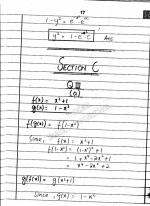 17
1-y² = e^-x² e^-c
y² = 1-e^-x² c Ans
SECTION C
QIII
(a)
f(x) = x²+1
g(x) = 1-x²
f(g(x)) = f(1-x²)
Since, f(x) = x²+1
f(1-x²) = (1-x²)²+1
= 1+x⁴-2x²+1
= x⁴-2x²+2
g(f(x)) = g(x²+1)
Since, g(x) = 1-x²